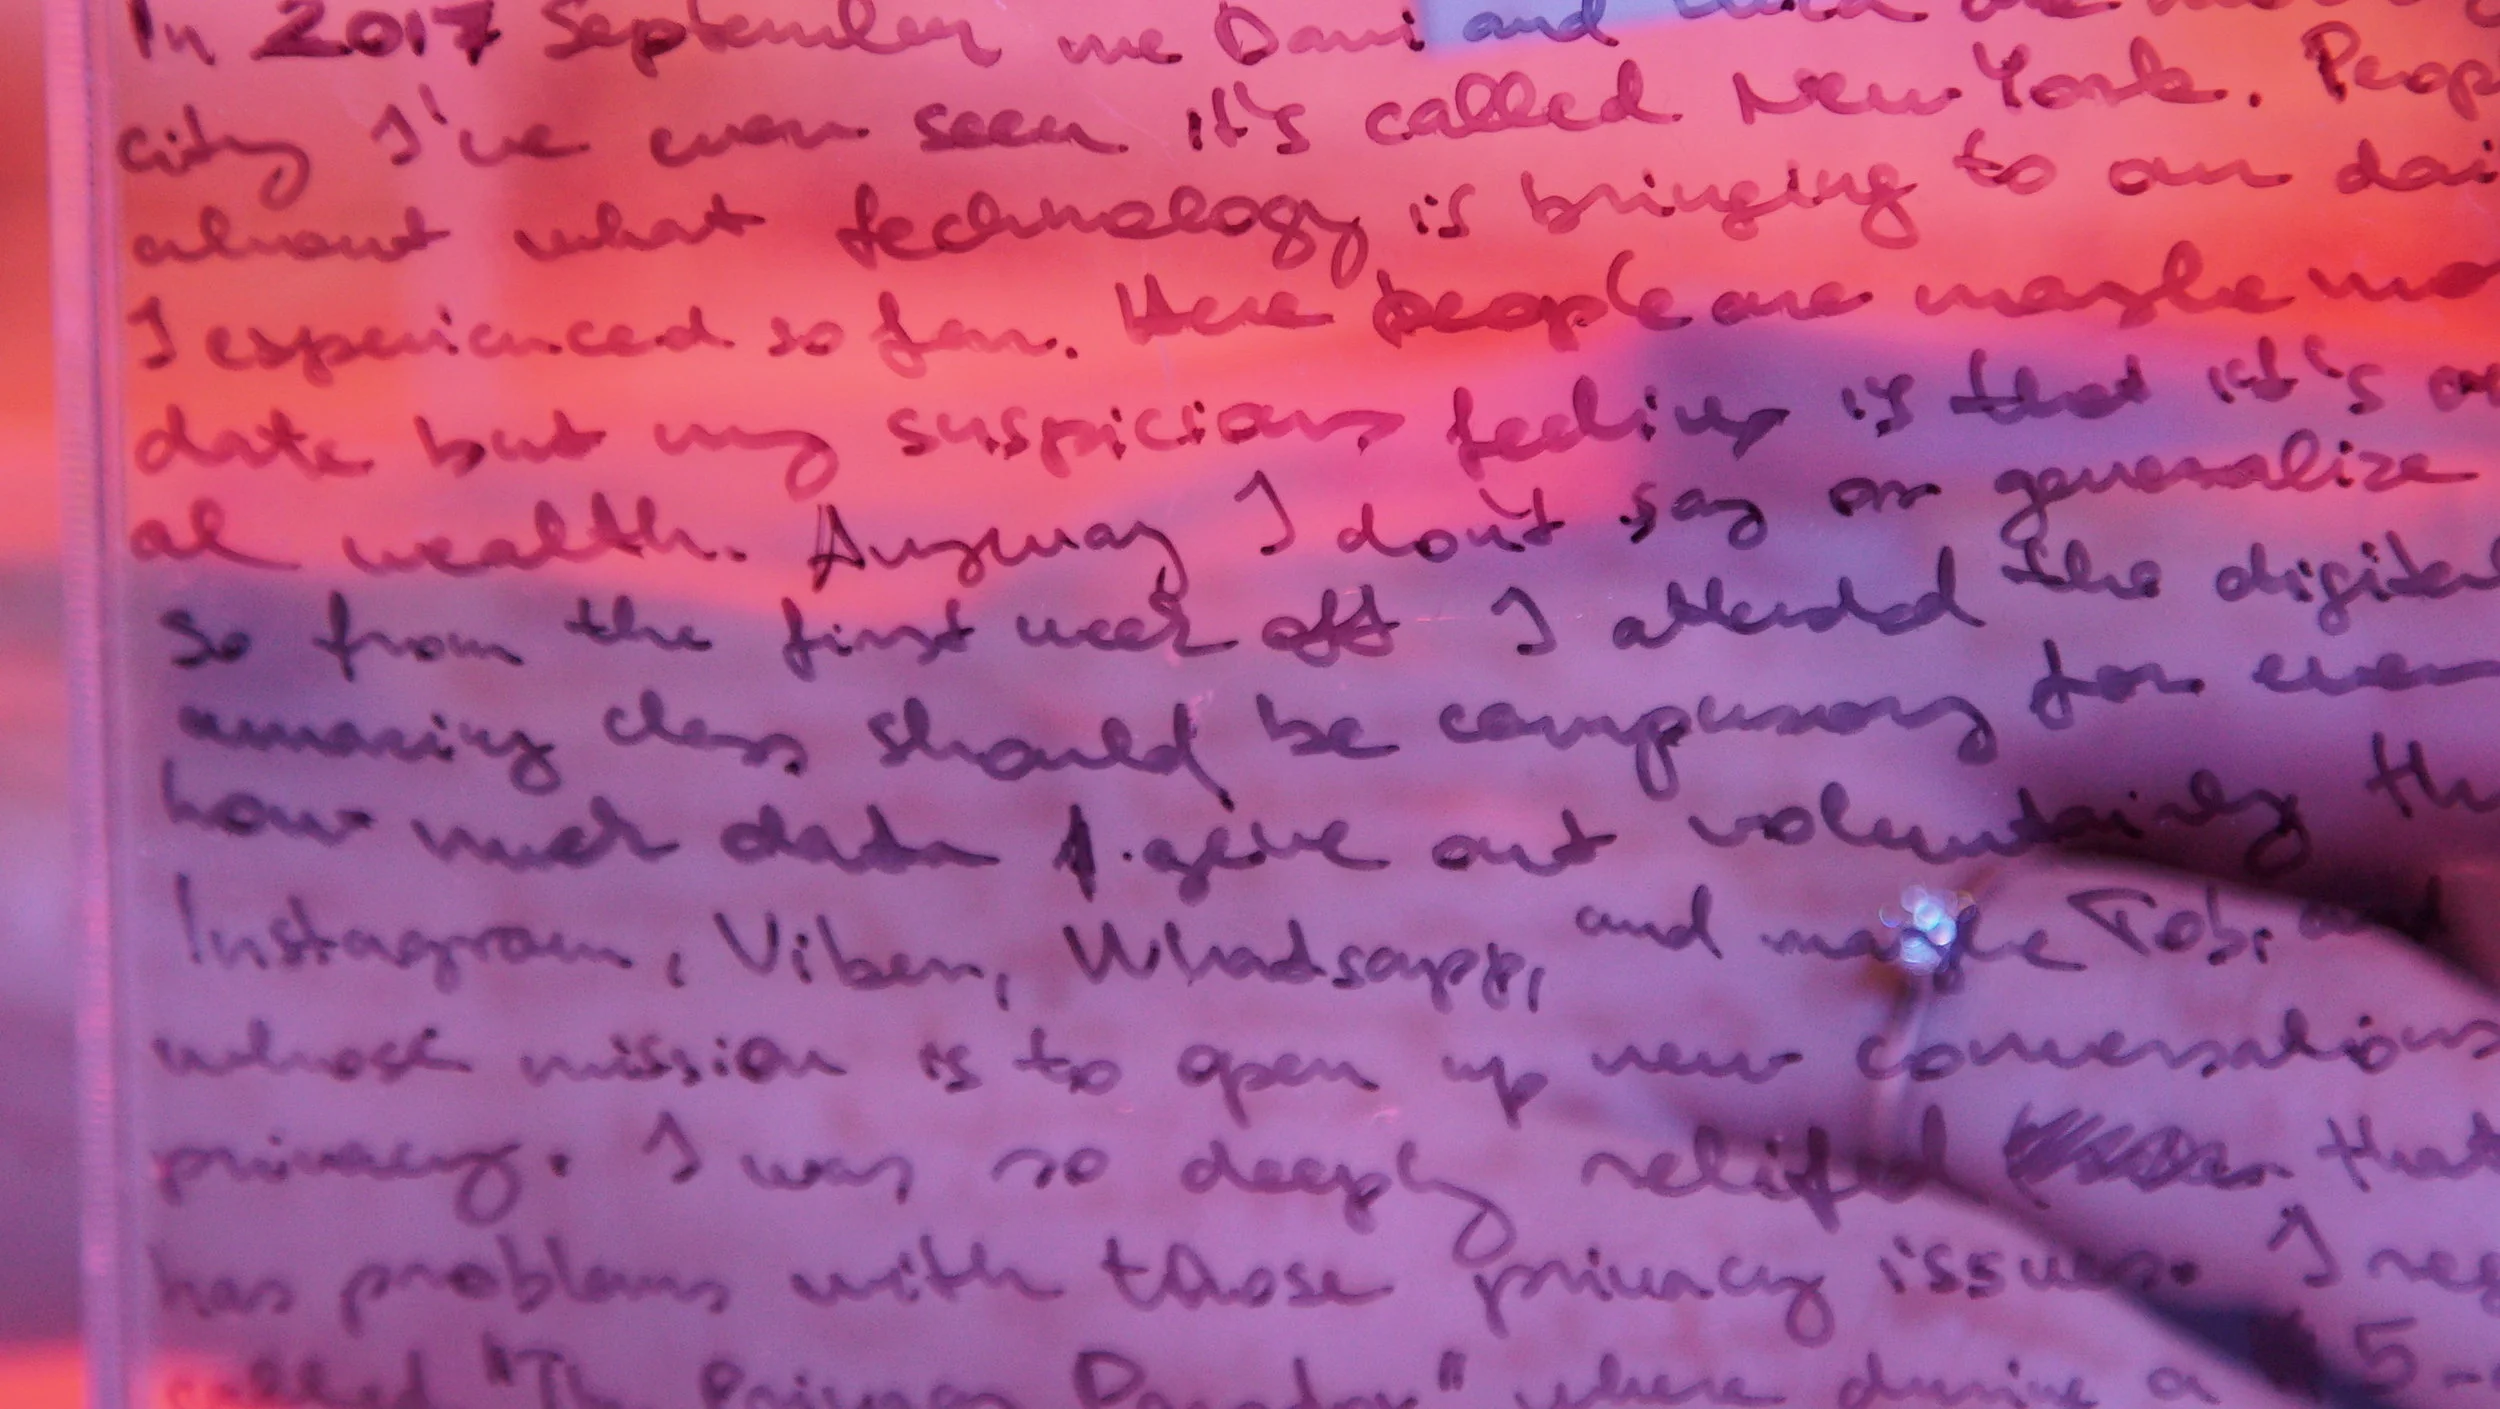 In 2017 September me Dani and
city I've ever seen it's called New York. Peop
about what technology is bringing to our dai
I experienced so far. Here people are maybe mo
date but my suspicious feeling is that it's
al wealth. Anyway I don't say or generalize
So from the first week off I attended the digital
amazing class should be compusory for ever
how much data I give out voluntairly th
Instagram, Viber, Whatsapp, and maybe Tobi and
whose mission is to open up new conversations
privacy. I was so deeply relifed that
has problems with those privacy issues. I reg
called "The Privacy Paradox" where during a 5-